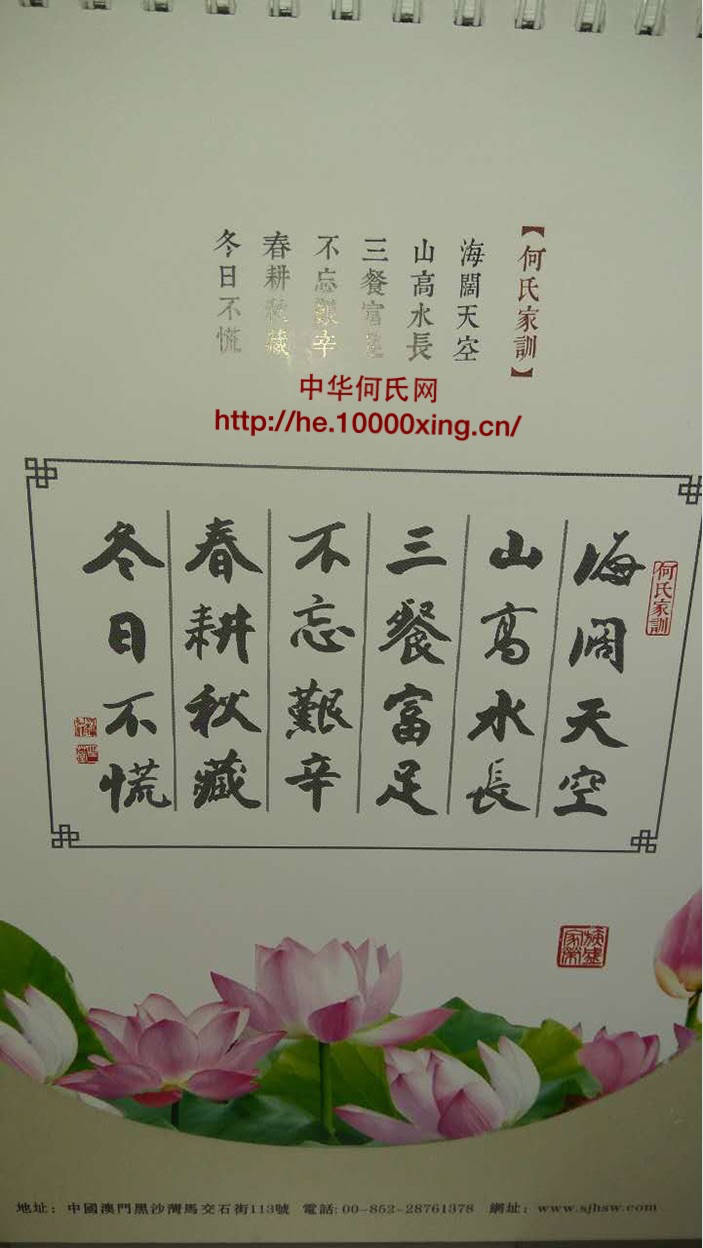 【何氏家訓】
海闊天空
山高水長
三餐富足
不忘艱辛
春耕秋藏
冬日不慌
中华何氏网
http://he.10000xing.cn/
何氏家訓
海阔天空
山高水長
三餐富足
不忘艱辛
春耕秋藏
冬日不慌
族盛家榮
地址：中國澳門黑沙灣馬交石街113號 電話:00-852-28761378 網址：www.sjhsw.com